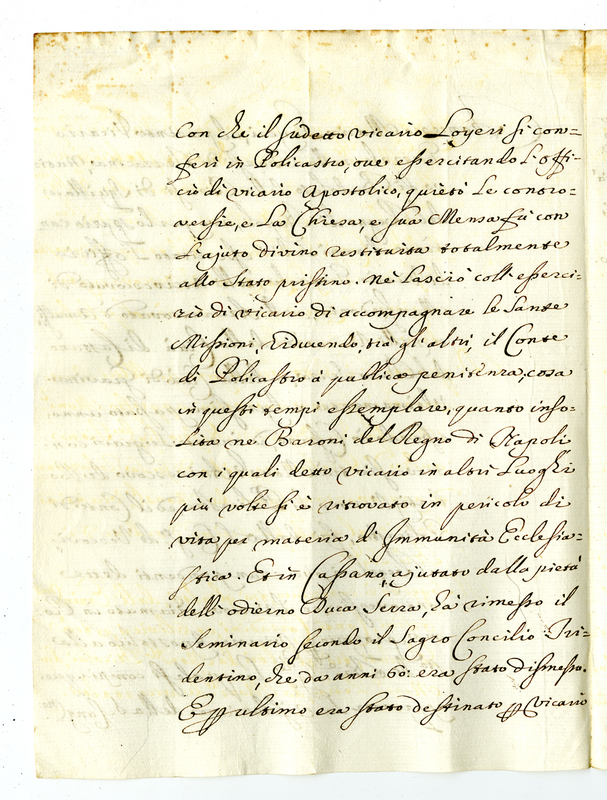 Con che il sudetto vicario Loyeri si con=
ferì in Policastro, oue essercitando l'offi=
cio di vicario Apostolico, quietò le contro=
versie, e la Chiesa, e sua Mensa fù con
l'ajuto divino restituita totalmente
allo stato pristino. Nè lasciò coll'esserci=
zio di vicario di accompagnare le Sante
Missioni, riducendo, trà gl'altri, il Conte
di Policastro à publicæ penitenza, cosa
in questi tempi essemplare, quanto inso=
lita ne Baroni del Regno di Napoli
con i quali detto vicario in altri Luoghi
più volte si è ritrovato in pericolo di
vita per materia di Immunità Ecclesia=
stica. Et in Cassano, ajutato dalla pietà
dell'odierno Duca Serra, hà rimesso il
Seminario secondo il Sagro Concilio Tri=
dentino, che da anni 60: era stato dismesso.
E pp ultimo era stato destinato pp vicario